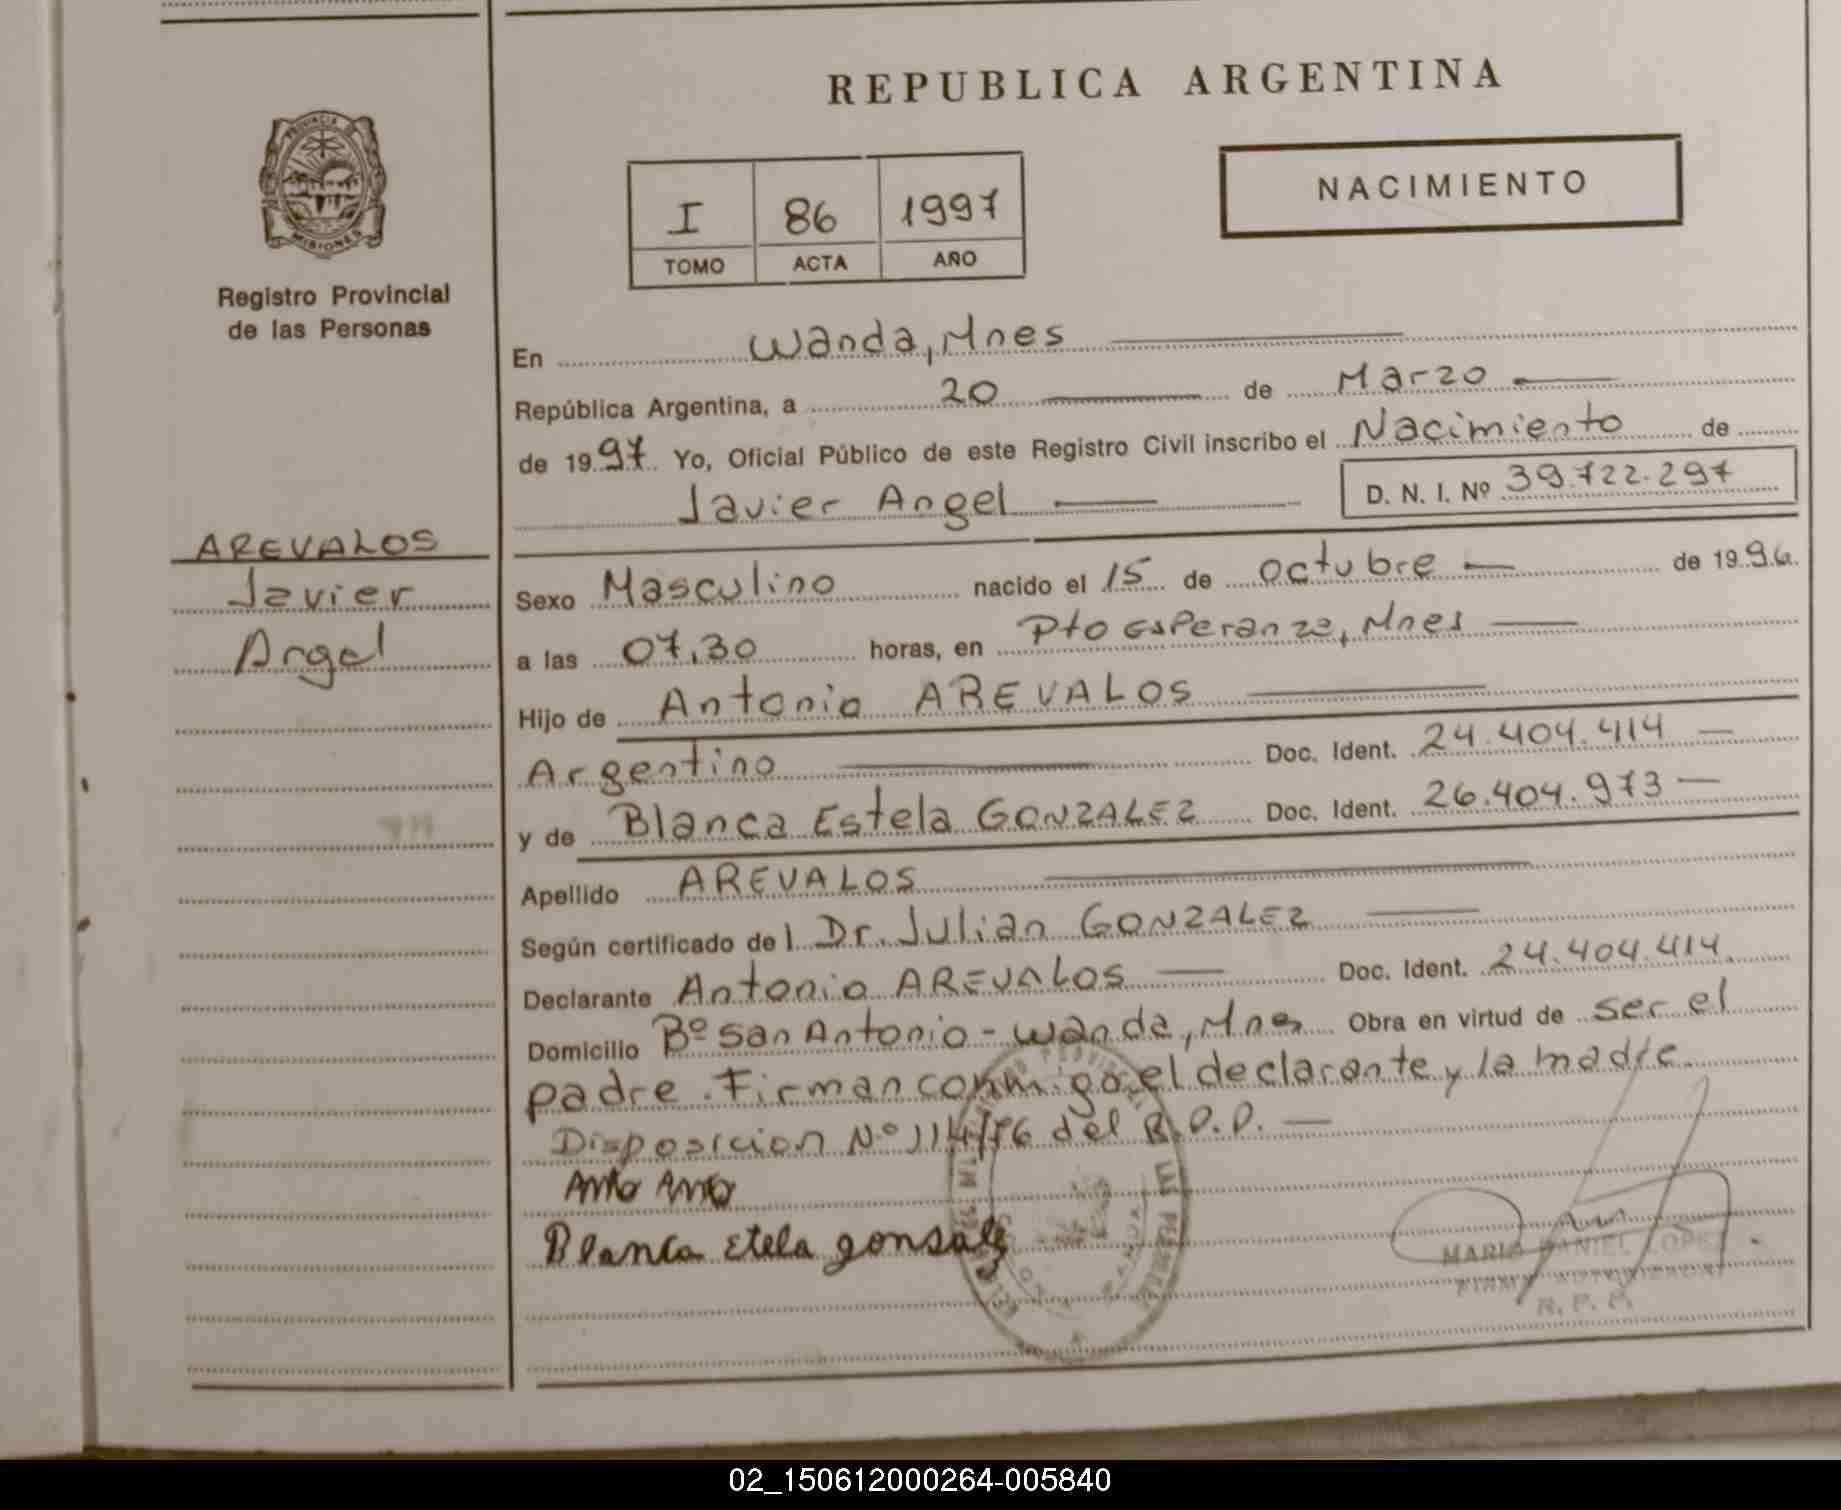 PROVINCIA DE
MISIONES
Registro Provincial
de las Personas
AREVALOS
Javier
Angel
REPUBLICA ARGENTINA
NACIMIENTO
I 86 1997
TOMO ACTA AÑO
En Wanda, Mnes
República Argentina, a 20 de Marzo
de 1997 Yo, Oficial Público de este Registro Civil inscribo el Nacimiento de
Javier Angel D. N. I. Nº 39.722.297
Sexo Masculino nacido el 15 de octubre de 1996.
a las 07,30 horas, en Pto Esperanza, Mnes
Hijo de Antonio AREVALOS
Argentino Doc. Ident. 24.404.414
y de Blanca Estela GONZALEZ Doc. Ident. 26.404.973
Apellido AREVALOS
Según certificado del Dr. Julian GONZALEZ
Declarante Antonio AREVALOS Doc. Ident. 24.404.414.
Domicilio Bº San Antonio - Wanda, Mnes Obra en virtud de ser el
padre. Firman conmigo, el declarante y la madre.
Disposicion Nº 114/86 del R.P.P.
Blanca Etela gonsalz
MARIO DANIEL LOPEZ
FIRMA AUTORIZADA
R. P. P.
02_150612000264-005840